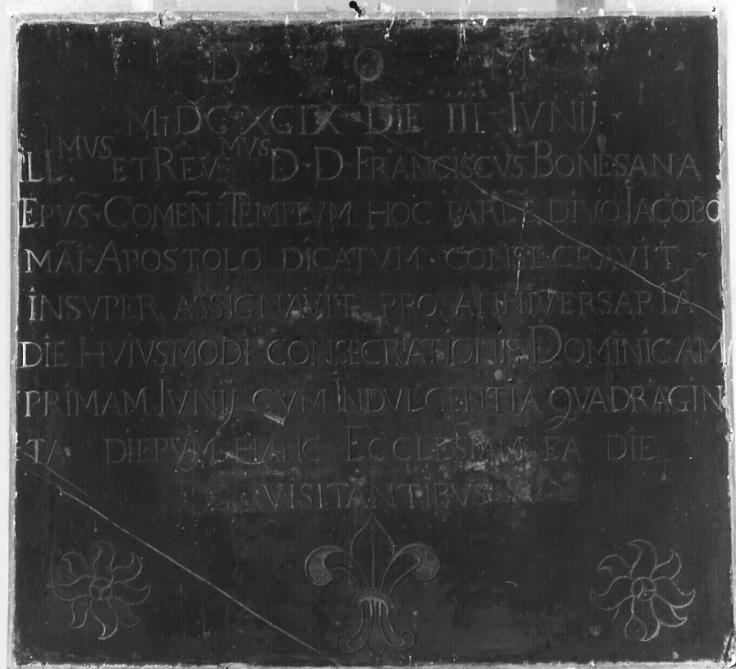 D O M
M·DC·XCIX·DIE III·IVNIJ·
ILL.MVS ET REVE.MVS D·D·FRANCISCVS BONESANA
EPVS·COMEÑ. TEMPLVM HOC DIVO IACOBO
MAĪ·APOSTOLO DICATVM·CONSECRAVIT,
INSVPER ASSIGNAVIT PRO ANNIVERSARIA
DIE HVIVSMODI CONSECRATIONIS DOMINICAM
PRIMAM IVNIJ CVM INDVLGENTIA QVADRAGIN
TA DIERVM HANC ECCLESIAM EA DIE
VISITANTIBVS